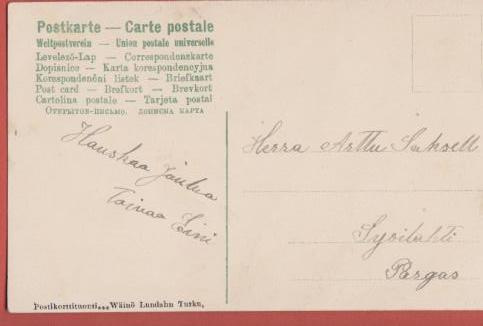 Postkarte — Carte postale
Weltpostverein — Union postale universelle
Levelező-Lap — Correspondenzkarte
Dopisnice — Karta korespondencyjna
Korespondenční listek — Briefkaart
Post card — Brefkort — Brevkort
Cartolina postale — Tarjeta postal
Открытое-письмо. дописна карта
Hauskaa Joulua
Toivoo Eini
Herra Arttu
Syvilahti
Pargas
Postikorttituonti... Wäinö Lundahn Turku.